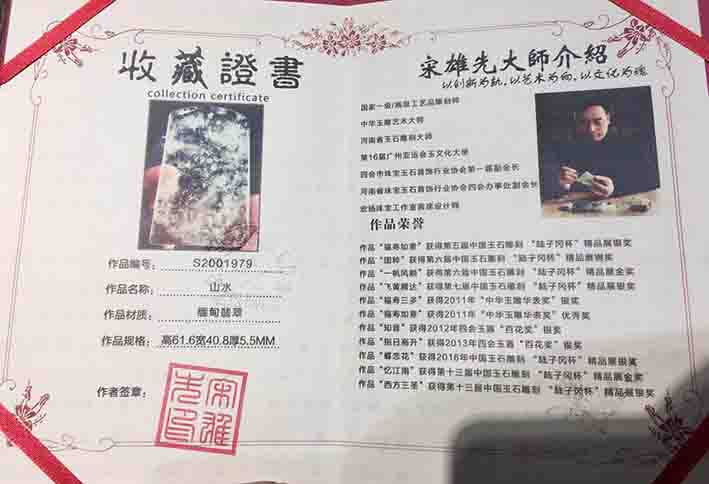 收藏證書
collection certificate
作品编号: S2001979
作品名称: 山水
作品材质: 缅甸翡翠
作品规格: 高61.6宽40.8厚5.5MM
作者签章:
宋雄先大師介紹
以创新为轨,以艺术为向,以文化为魂
国家一级/高级工艺品雕刻师
中华玉雕艺术大师
河南省玉石雕刻大师
第16届广州亚运会玉文化大使
四会市珠宝玉石首饰行业协会第一届副会长
河南省珠宝玉石首饰行业协会四会办事处副会长
宏扬珠宝工作室首席设计师
作品荣誉
作品“福寿如意”获得第五届中国玉石雕刻“陆子冈杯”精品展银奖
作品“国粹”获得第六届中国玉石雕刻“陆子冈杯”精品展铜奖
作品“一帆风顺”获得第六届中国玉石雕刻“陆子冈杯”精品展金奖
作品“飞黄腾达”获得第七届中国玉石雕刻“陆子冈杯”精品展银奖
作品“福寿三多”获得2011年“中华玉雕华表奖”银奖
作品“福寿如意”获得2011年“中华玉雕华表奖”优秀奖
作品“知音”获得2012年四会玉器“百花奖”银奖
作品“旭日高升”获得2013年四会玉器“百花奖”铜奖
作品“蝶恋花”获得2016年中国玉石雕刻“陆子冈杯”精品展银奖
作品“忆江南”获得第十三届中国玉石雕刻“陆子冈杯”精品展金奖
作品“西方三圣”获得第十三届中国玉石雕刻“陆子冈杯”精品展银奖